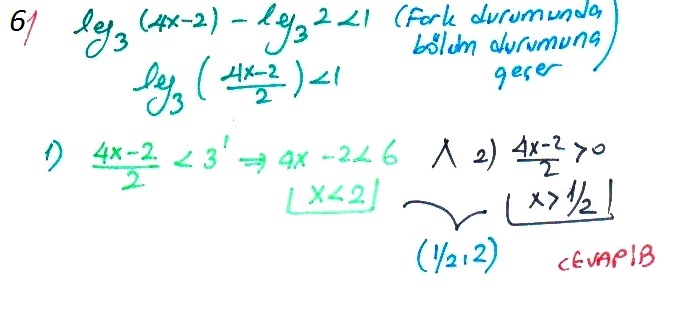 6) log₃ (4x-2) - log₃ 2 < 1 (Fark durumunda,
bölüm durumuna
geçer)
log₃ ( (4x-2)/2 ) < 1
1) (4x-2)/2 < 3¹ ⇒ 4x - 2 < 6 ∧ 2) (4x-2)/2 > 0
x < 2 x > 1/2
(1/2, 2) CEVAP B